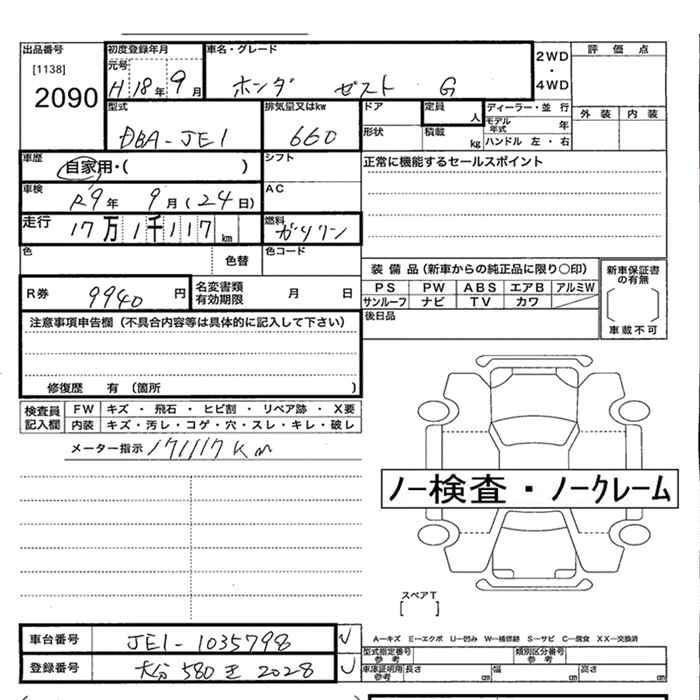 出品番号 初度登録年月 車名・グレード 評価点
[1138] 元号 2WD
2090 H18年9月 ホンダ ゼスト G ・
4WD
型式 排気量又はkw ドア 定員 人 ディーラー・並行 外装 内装
DBA-JE1 660 形状 積載 kg モデル年式 年
ハンドル 左・右
車歴 自家用・( ) シフト 正常に機能するセールスポイント
車検 R9年 9月(24日) AC
走行 17万1千117km 燃料 ガソリン
色 色替 色コード
装備品(新車からの純正品に限り〇印) 新車保証書の有無
R券 9940円 名変書類有効期限 月 日 PS PW ABS エアB アルミW
サンルーフ ナビ TV カワ
車載不可
注意事項申告欄(不具合内容等は具体的に記入して下さい) 後日品
修復歴 有(箇所 )
検査員記入欄 FW キズ・飛石・ヒビ割・リペア跡・X要
内装 キズ・汚レ・コゲ・穴・スレ・キレ・破レ
メーター指示 171117Km
ノー検査・ノークレーム
スペアT
[ ]
車台番号 JE1-1035798
A―キズ E―エクボ U―凹み W―補修跡 S―サビ C―腐食 XX―交換済
型式指定番号 参考 類別区分番号 参考
登録番号 大分 580 2028
車庫証明用 参考 長さ cm 幅 cm 高さ cm